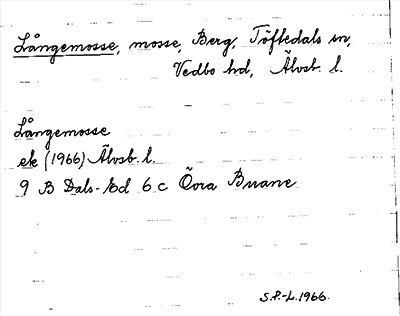 Långemosse, mosse, Berg, Töftedals sn,
Vedbo hd, Älvsb. l.
Långemosse
ek (1966) Älvsb. l.
9 B Dals-Ed 6 c Övra Buane
S.P.-L. 1966.